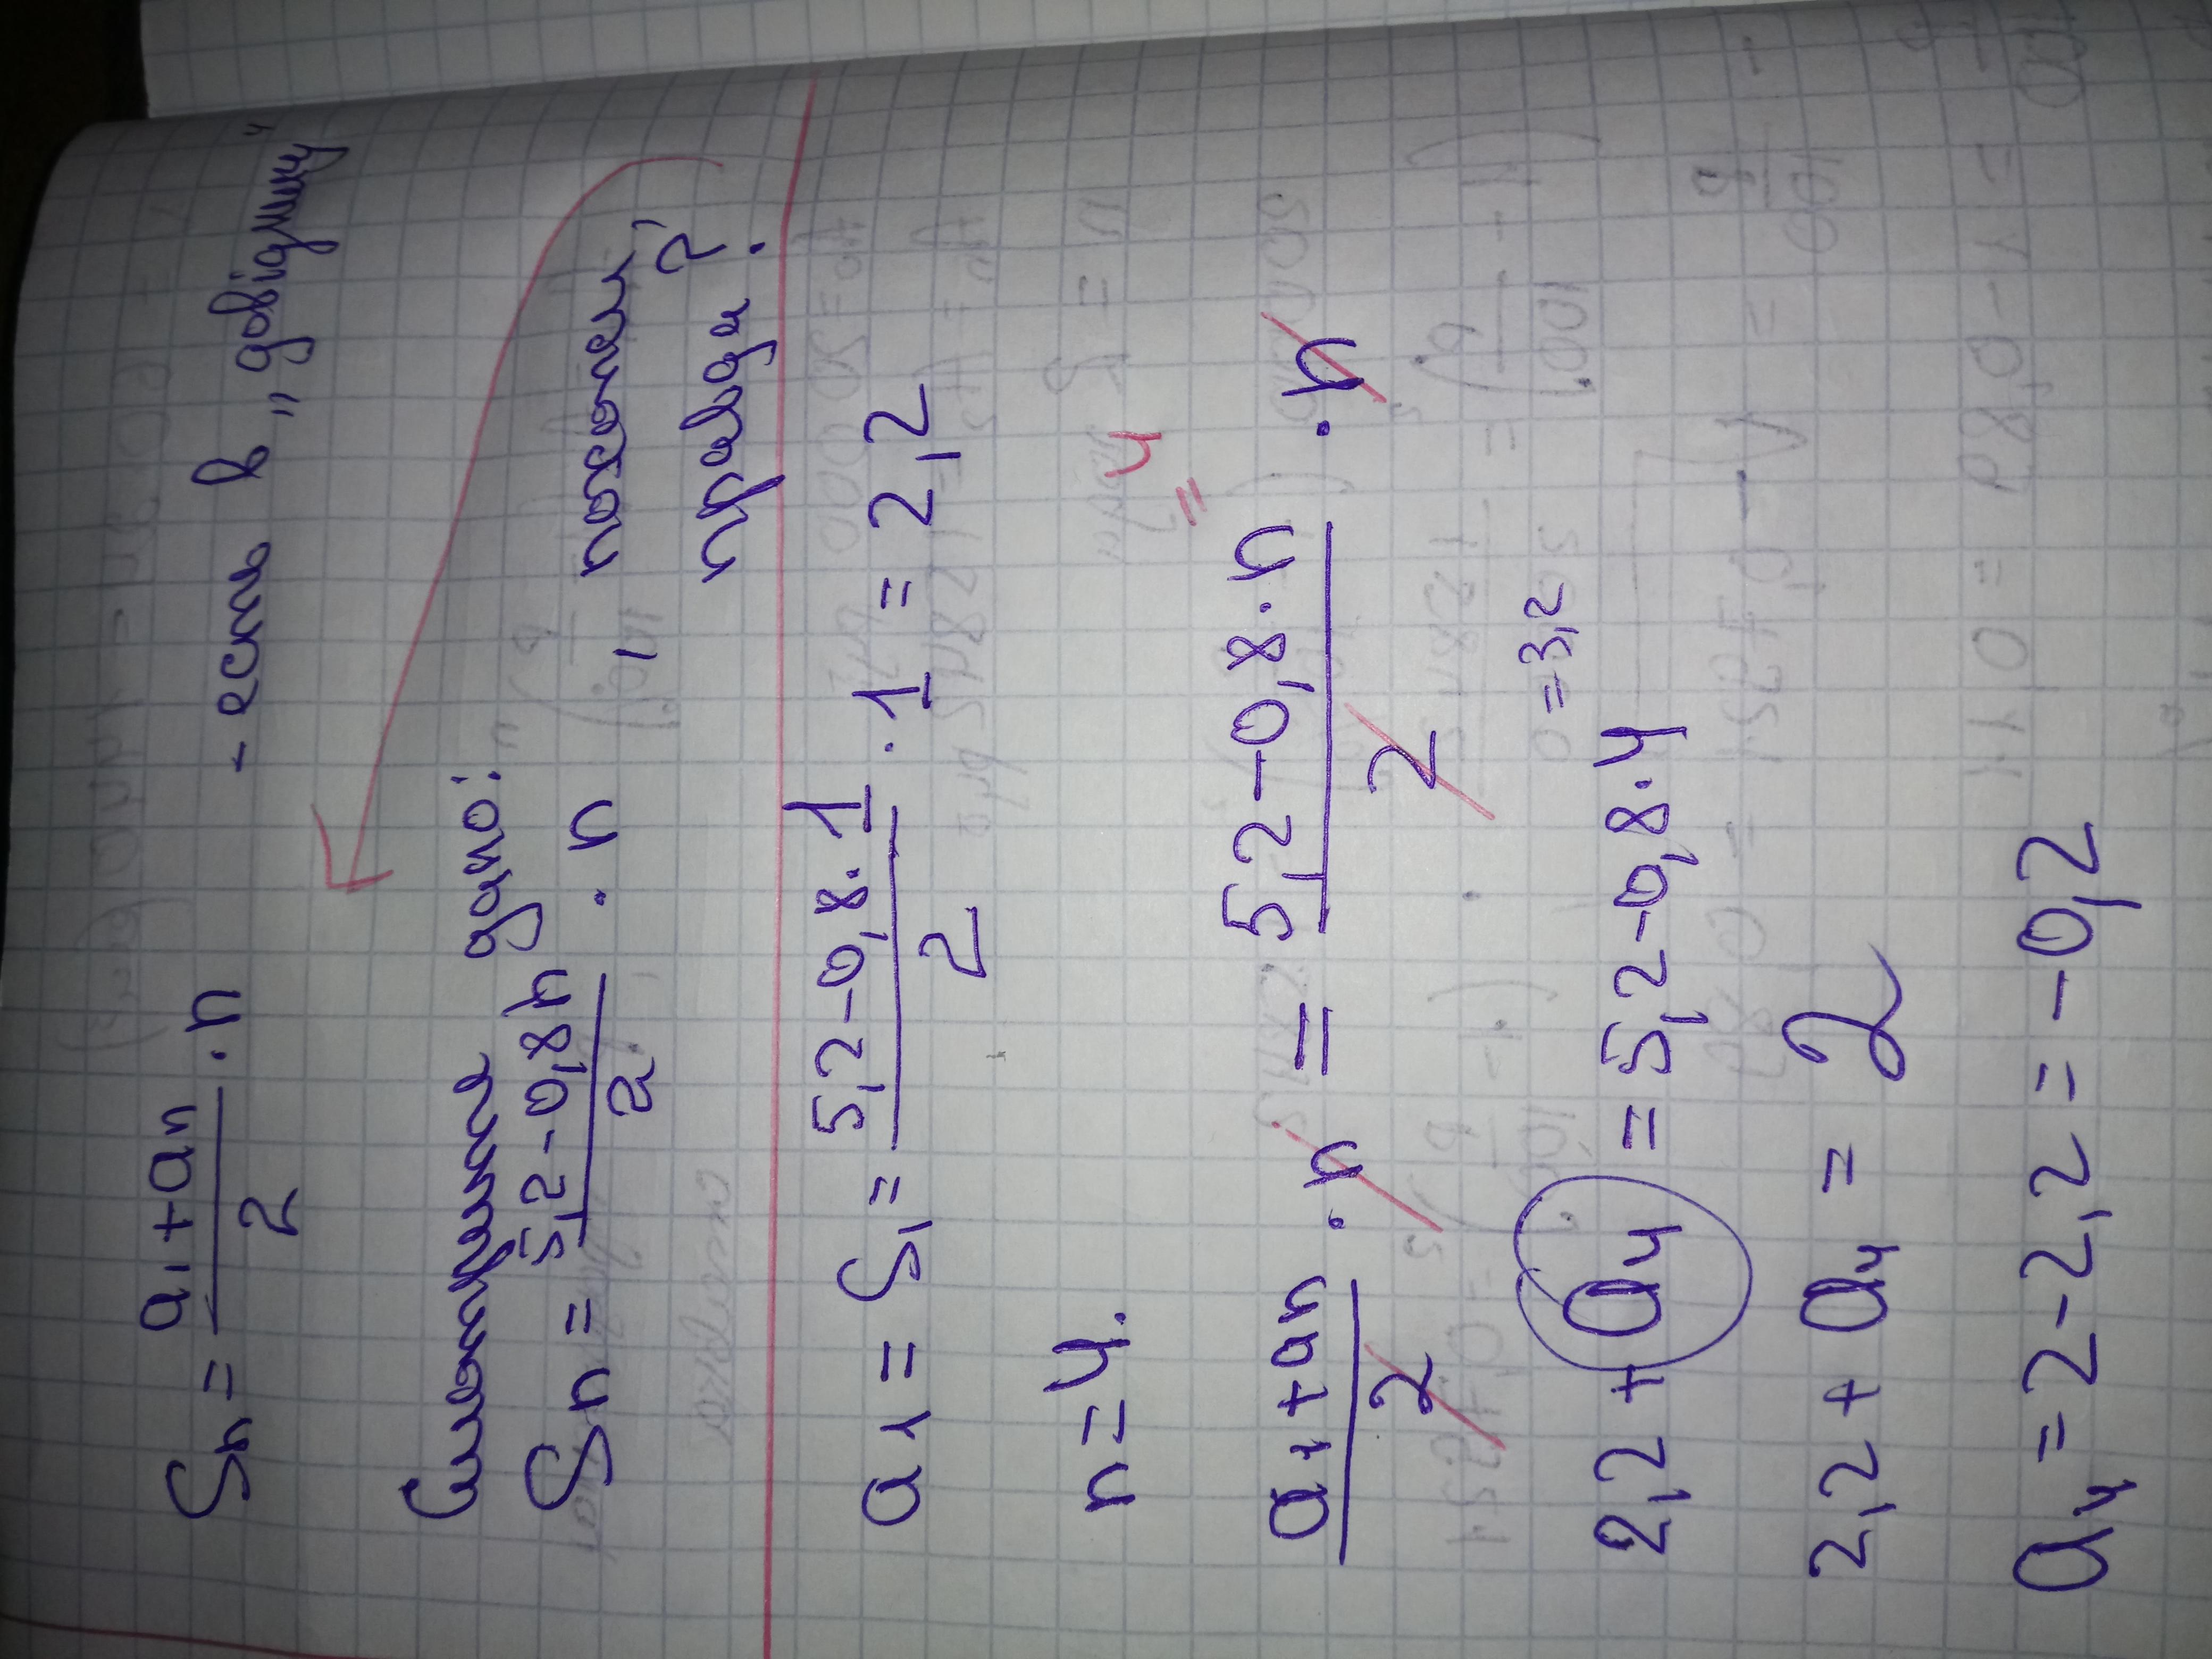 Sₙ = (a₁ + aₙ)/2 · n - есть в „довіднику"
Систематично дано:
Sₙ = (5,2 - 0,8n)/2 · n , похожи, правда?
a₁ = S₁ = (5,2 - 0,8·1)/2 · 1 = 2,2
n = 4.
(a₁ + aₙ)/2 · n = (5,2 - 0,8·n)/2 · n
= 4
2,2 + a₄ = 5,2 - 0,8·4 = 3,2
2,2 + a₄ = 2
a₄ = 2 - 2,2 = -0,2